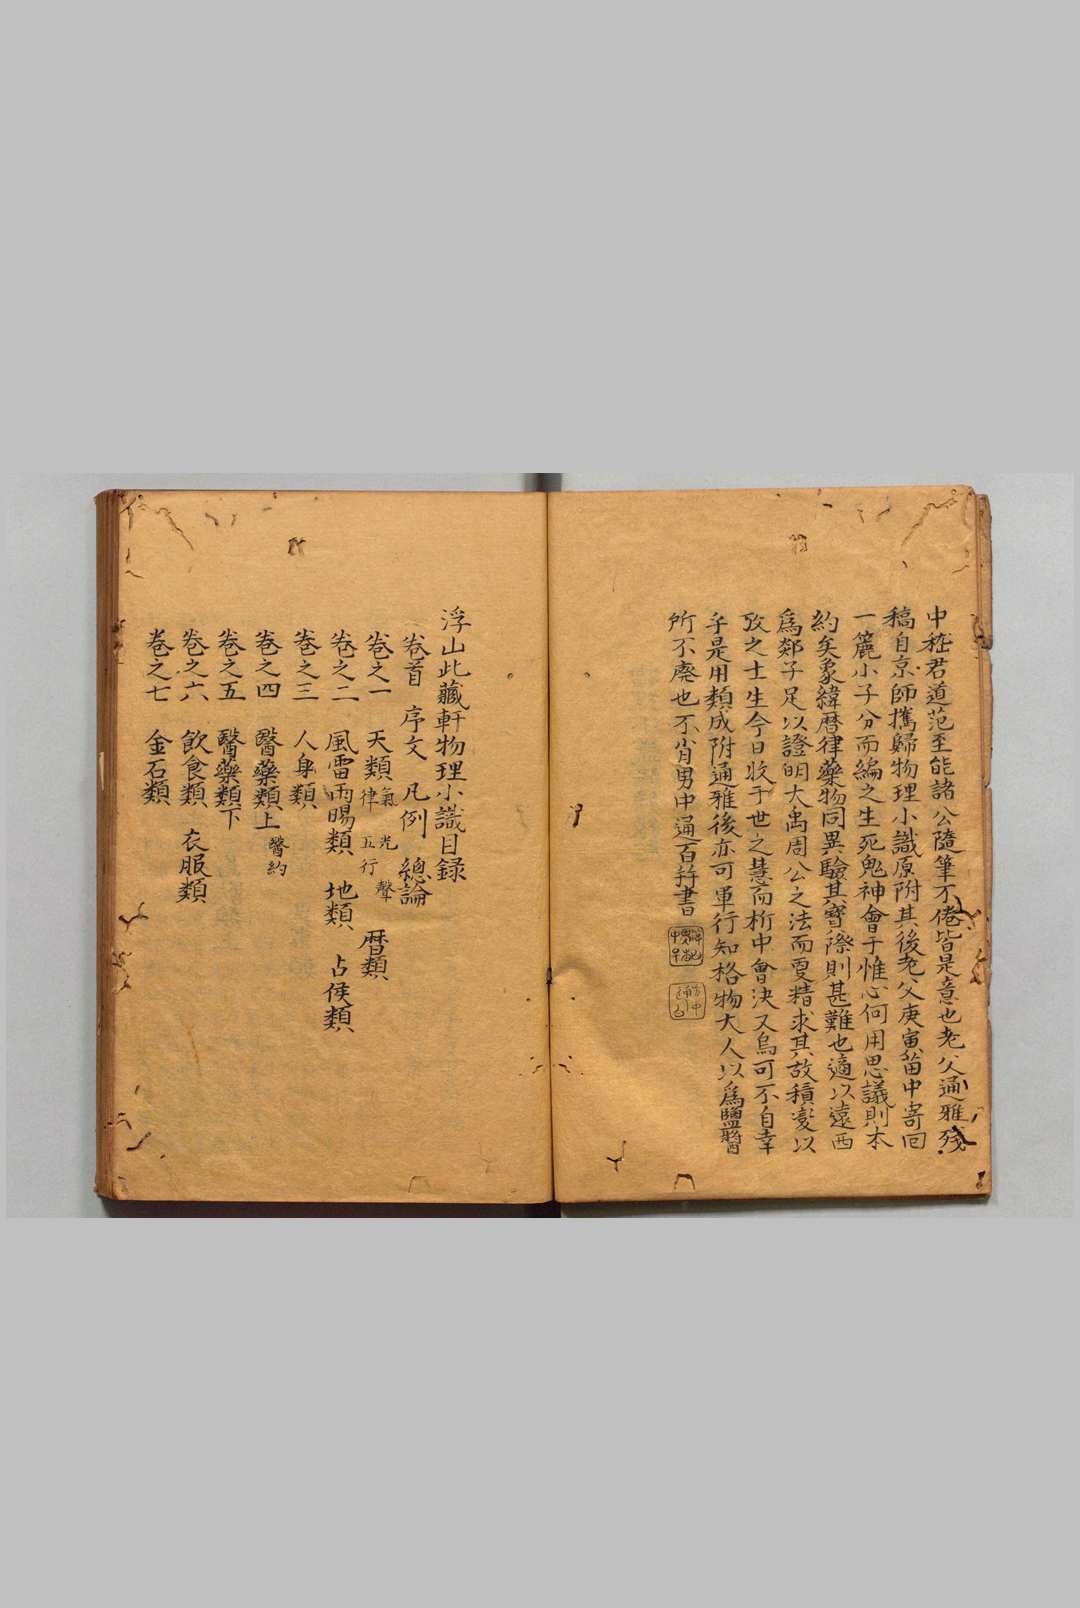 中嵇君道范至能諸公隨筆不倦皆是意也老父通雅殘
稿自京師攜歸物理小識原附其後老父庚寅苗中寄回
一簏小子分而編之生死鬼神會于惟心何用思議則本
約矣象緯曆律藥物同異驗其實際則甚難也適以遠西
爲郯子足以證明大禹周公之法而更精求其故積變以
攷之士生今日收千世之慧而析中會決又烏可不自幸
乎是用類成附通雅後亦可單行知格物大人以爲鹽醬
所不廢也不肖男中通百拜書
浮山此藏軒物理小識目錄
卷首 序文 凡例 總論
卷之一 天類 氣 光 聲 律 五行 曆類
卷之二 風雷雨暘類 地類 占侯類
卷之三 人身類
卷之四 醫藥類上 醫約
卷之五 醫藥類下
卷之六 飲食類 衣服類
卷之七 金石類